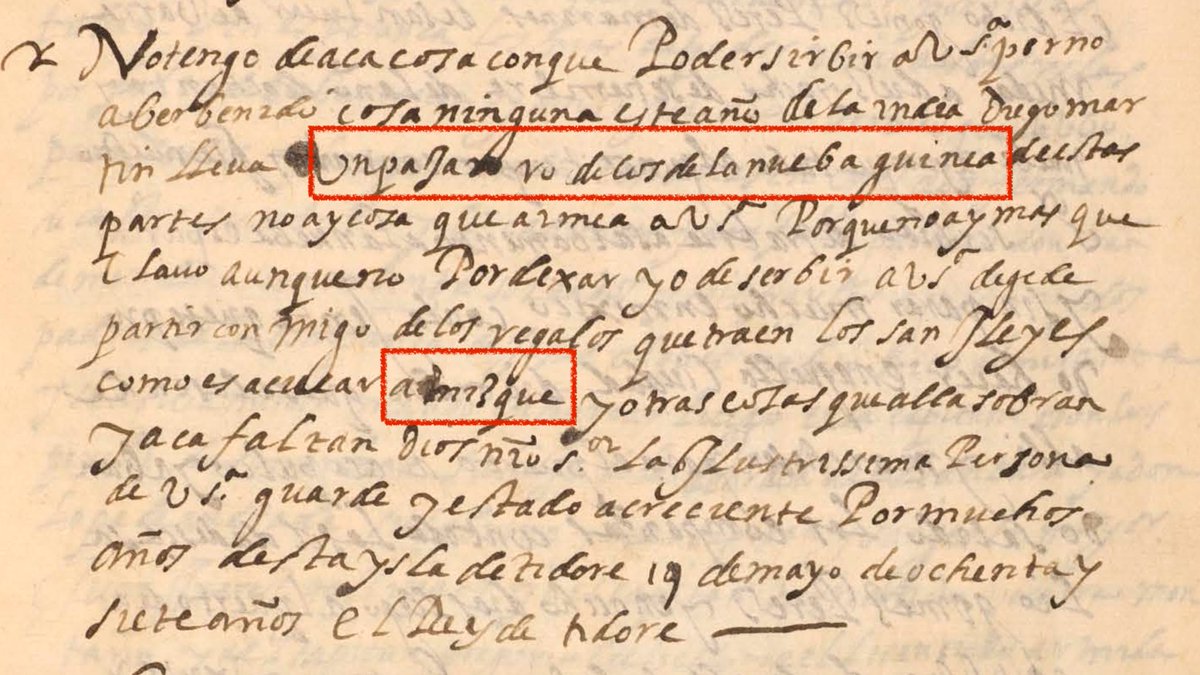 No tengo de aca cosa con que Poder sirbir a V sª por no
aber benido cosa ninguna este año de la india Diego mar
tin lleva Un paJaro ro de los de la nueba guinea de estas
partes no ay cosa que a V sª Por que no ay mas que
Clavo aunque no Por dexar yo de serbir a V sª deje de
partir con migo de los regalos que traen los sanGleyes
como es acucar almisque y otras cosas que alla sobran
y aca faltan Dios nro s.or La yLustrissima Persona
de V sª guarde y estado acreciente Por muchos
años desta ysla de tidore 19 de mayo de ochenta y
siete años el Rey de tidore